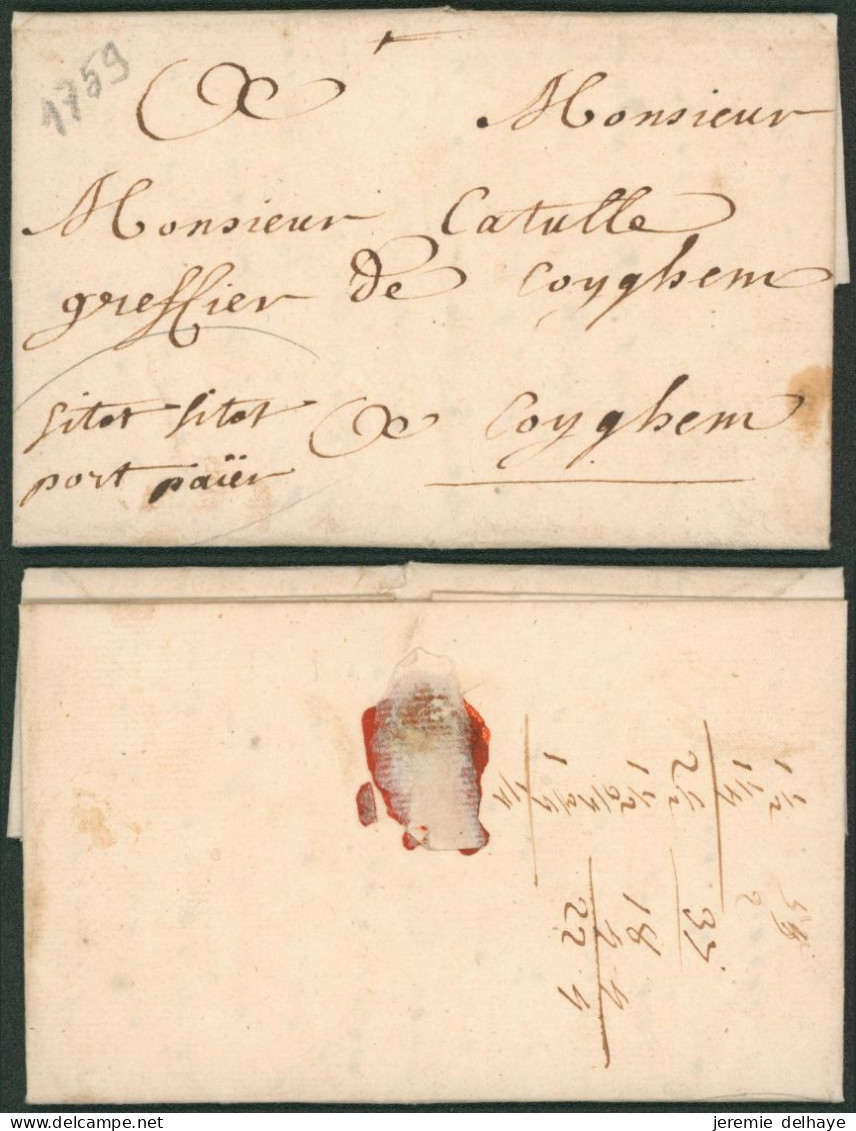 1759
Monsieur
Monsieur Catulle
greffier de Coyghem
sitot sitot
port païer
Coyghem
1 1/2
1 1/4
2 1/2
1 1/2
1
33
18
22
jeremie delhaye